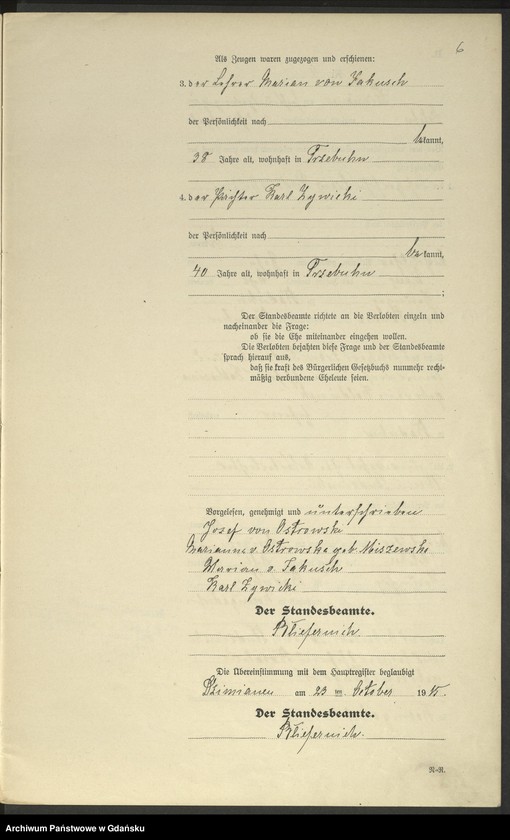 6
Als Zeugen waren zugezogen und erschienen:
3. der Lehrer Marian von Jakusch
der Persönlichkeit nach
bekannt,
38 Jahre alt, wohnhaft in Trzebuhn
4. der Pächter Karl Zywicki
der Persönlichkeit nach
bekannt,
40 Jahre alt, wohnhaft in Trzebuhn
;
Der Standesbeamte richtete an die Verlobten einzeln und
nacheinander die Frage:
ob sie die Ehe miteinander eingehen wollen.
Die Verlobten bejahten diese Frage und der Standesbeamte
sprach hierauf aus,
daß sie kraft des Bürgerlichen Gesetzbuchs nunmehr recht-
mäßig verbundene Eheleute seien.
Vorgelesen, genehmigt und unterschrieben
Josef von Ostrowski
Marianna v. Ostrowska geb. Miszewska
Marian v. Jakusch
Karl Zywicki
Der Standesbeamte.
Die Übereinstimmung mit dem Hauptregister beglaubigt
am 23 ten October 19
Der Standesbeamte.
N-R.
Archiwum Państwowe w Gdańsku